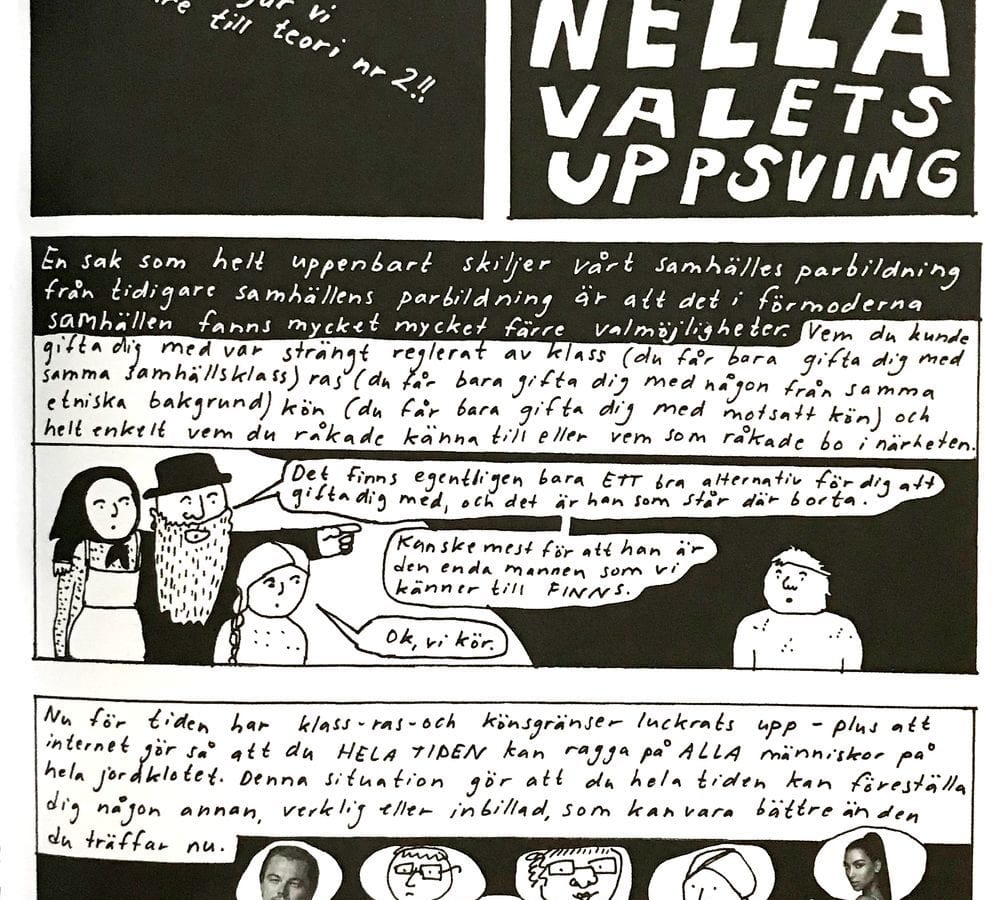 vi
till teori nr 2!!
NELLA
VALETS
UPPSVING
En sak som helt uppenbart skiljer vårt samhälles parbildning
från tidigare samhällens parbildning är att det i förmoderna
samhällen fanns mycket mycket färre valmöjligheter. Vem du kunde
gifta dig med var strängt reglerat av klass (du får bara gifta dig med
samma samhällsklass) ras (du får bara gifta dig med någon från samma
etniska bakgrund) kön (du får bara gifta dig med motsatt kön) och
helt enkelt vem du råkade känna till eller vem som råkade bo i närheten.
Det finns egentligen bara ETT bra alternativ för dig att
gifta dig med, och det är han som står där borta.
Kanske mest för att han är
den enda mannen som vi
känner till FINNS.
Ok, vi kör.
Nu för tiden har klass-ras-och könsgränser luckrats upp - plus att
internet gör så att du HELA TIDEN kan ragga på ALLA människor på
hela jordklotet. Denna situation gör att du hela tiden kan föreställa
dig någon annan, verklig eller inbillad, som kan vara bättre än den
du träffar nu.